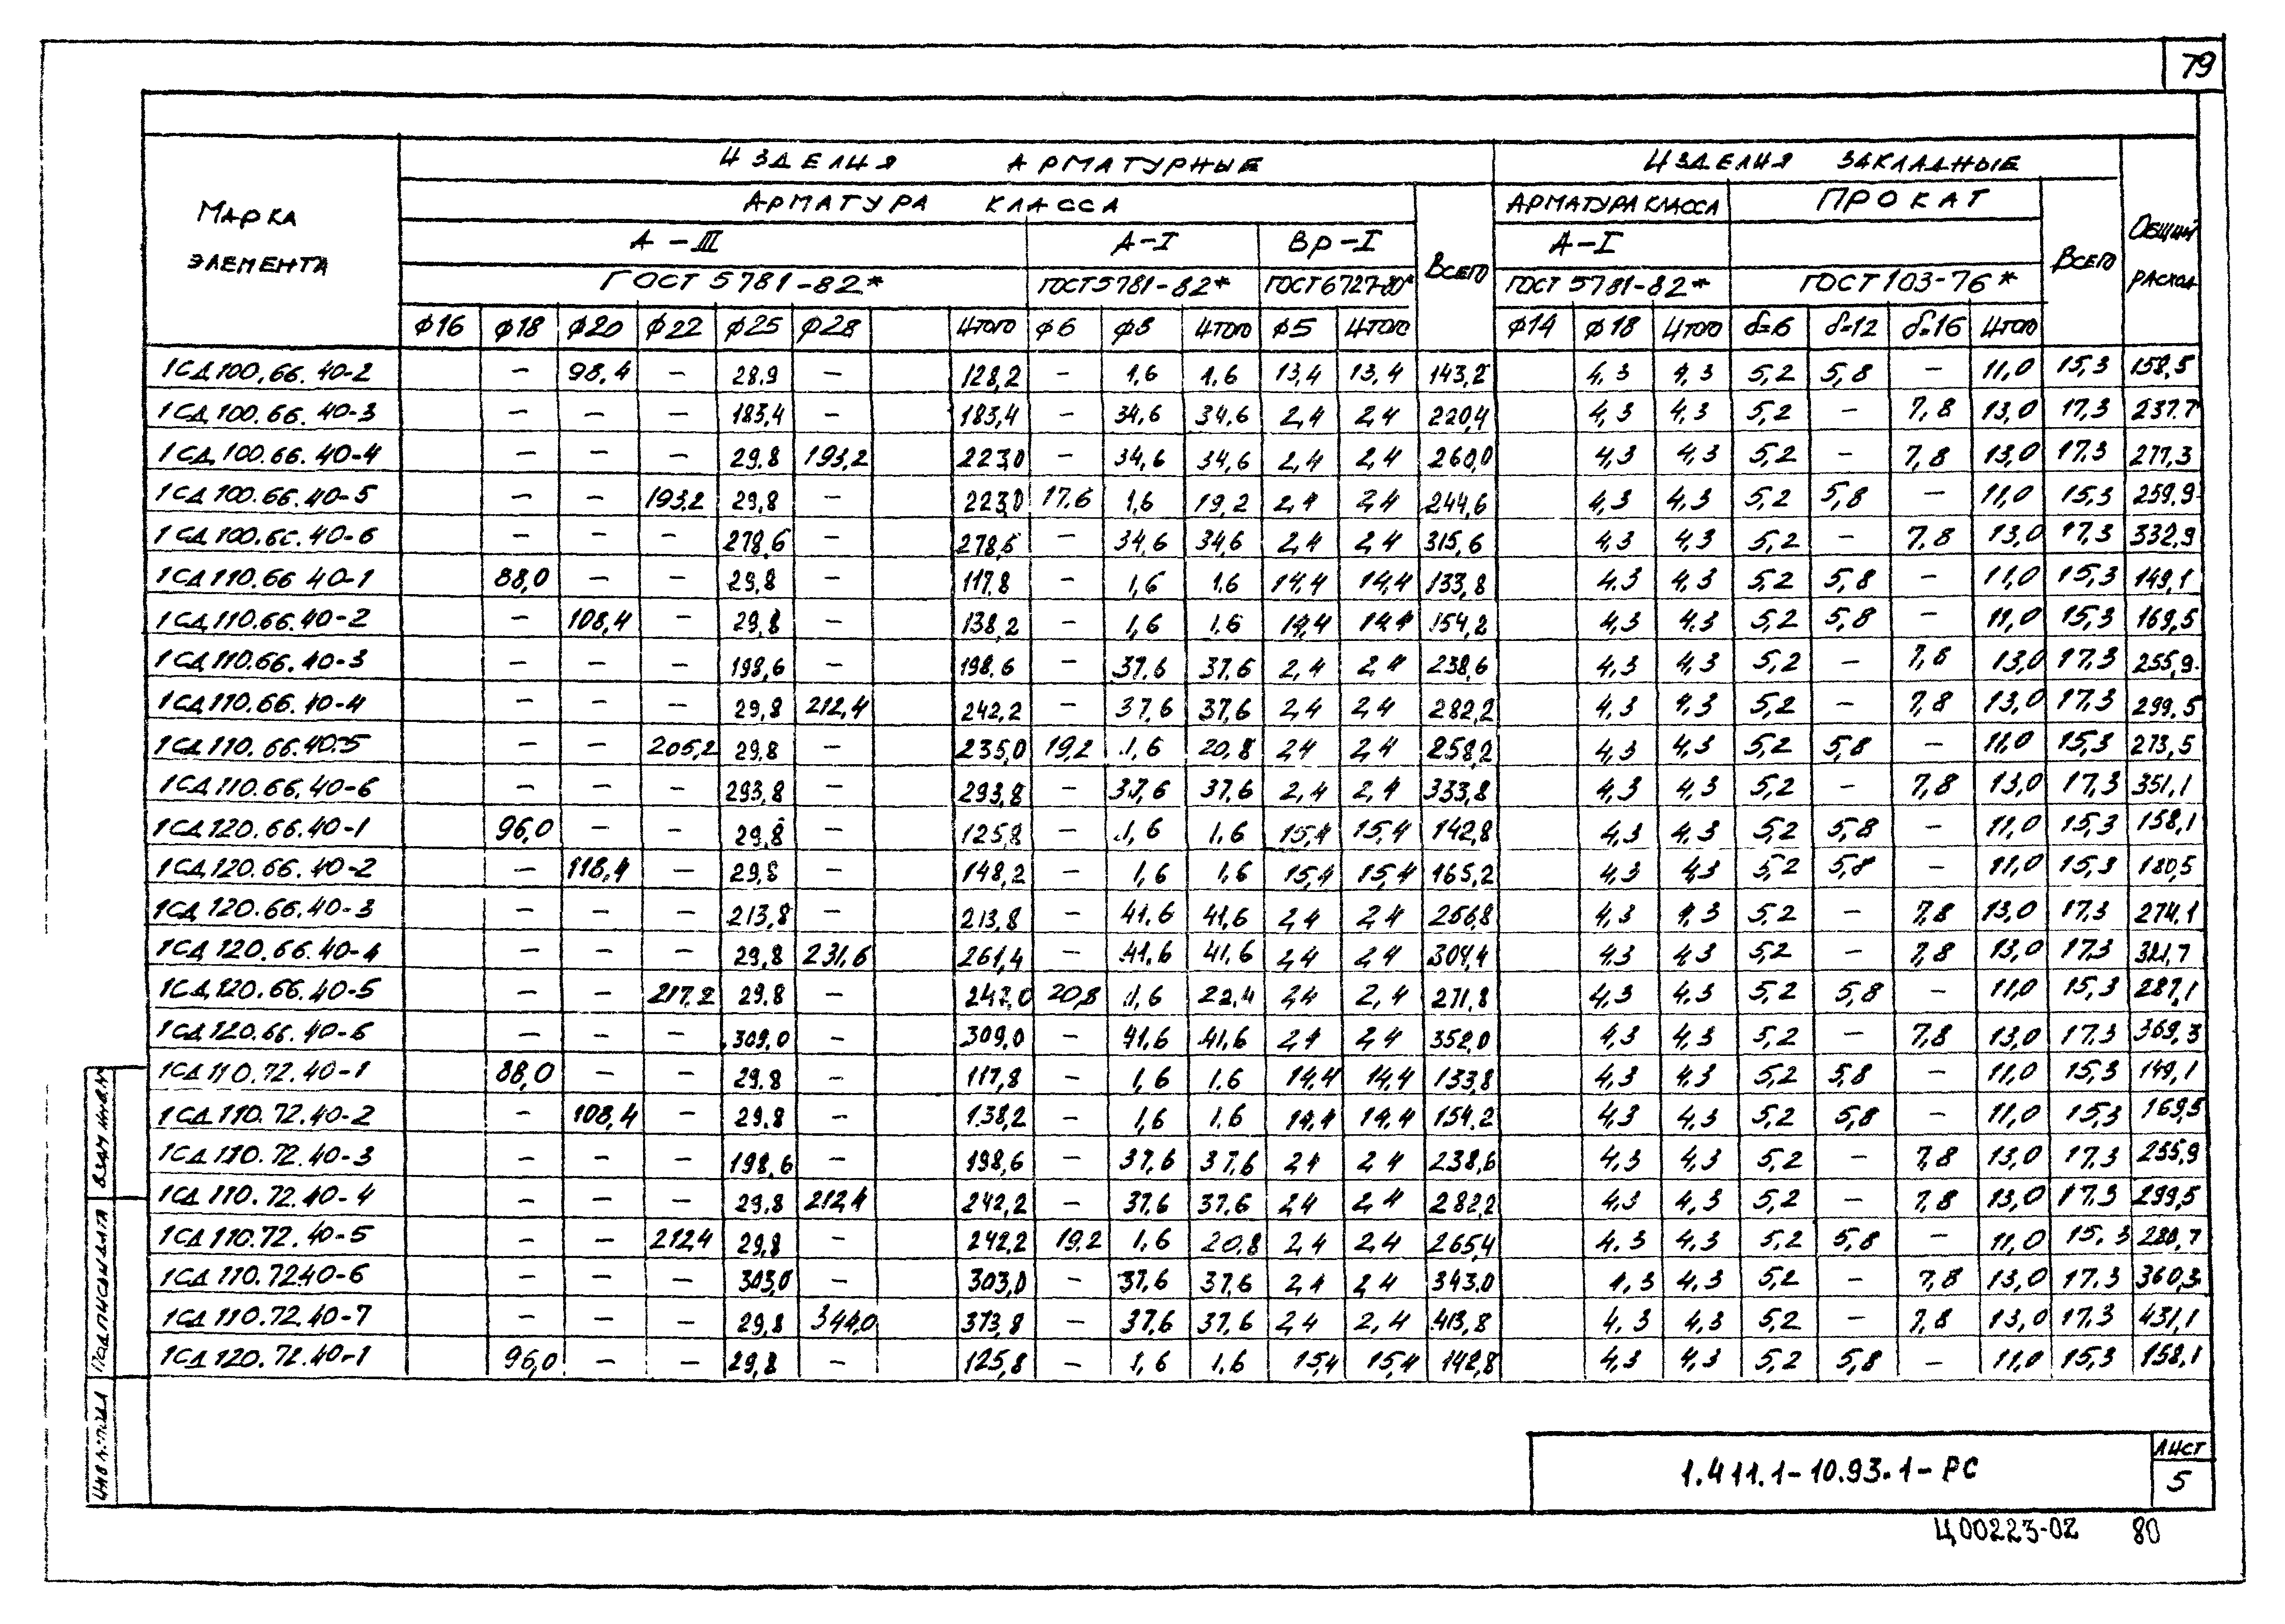 79
Марка элемента
Изделия арматурные
Изделия закладные
Общий расход
Арматура класса
Всего
Арматура класса
Прокат
Всего
А-III
А-I
Вр-I
А-I
ГОСТ 5781-82*
ГОСТ 5781-82*
ГОСТ 6727-80*
ГОСТ 5781-82*
ГОСТ 103-76*
ф16 ф18 ф20 ф22 ф25 ф28 Итого ф6 ф8 Итого ф5 Итого ф14 ф18 Итого δ=6 δ=12 δ=16 Итого
1СД 100.66.40-2 – 98,4 – 28.9 – 128,2 – 1,6 1.6 13,4 13,4 143,2 4,3 4,3 5,2 5,8 – 11,0 15,3 158,5
1СД 100.66.40-3 – – – 183,4 – 183,4 – 34,6 34,6 2,4 2,4 220,4 4,3 4,3 5,2 – 7,8 13,0 17,3 237.7
1СД 100.66.40-4 – – – 29.8 193,2 223,0 – 34,6 34,6 2,4 2,4 260,0 4,3 4,3 5,2 – 7,8 13,0 17,3 277,3
1СД 100.66.40-5 – – 193,2 29,8 – 223,0 17.6 1,6 19,2 2,4 2,4 244,6 4,3 4,3 5,2 5,8 – 11,0 15,3 259,9
1СД 100.66.40-6 – – – 278,6 – 278,6 – 34,6 34,6 2,4 2,4 315,6 4,3 4,3 5,2 – 7,8 13,0 17,3 332,9
1СД 110.66 40-1 88,0 – – 29,8 – 117,8 – 1,6 1.6 14,4 14,4 133,8 4,3 4,3 5,2 5,8 – 11,0 15,3 149,1
1СД 110.66.40-2 – 108,4 – 29,8 – 138,2 – 1,6 1.6 14,4 14,4 154,2 4,3 4,3 5,2 5,8 – 11,0 15,3 169,5
1СД 110.66.40-3 – – – 198,6 – 198,6 – 37,6 37,6 2,4 2,4 238,6 4,3 4,3 5,2 – 7,8 13,0 17,3 255,9
1СД 110.66.40-4 – – – 29,8 212,4 242,2 – 37,6 37,6 2,4 2,4 282,2 4,3 4,3 5,2 – 7,8 13,0 17,3 299,5
1СД 110.66.40-5 – – 205,2 29,8 – 235,0 19,2 1,6 20,8 2,4 2,4 258,2 4,3 4,3 5,2 5,8 – 11,0 15,3 273,5
1СД 110.66.40-6 – – – 293,8 – 293,8 – 37,6 37,6 2,4 2,4 333,8 4,3 4,3 5,2 – 7,8 13,0 17,3 351,1
1СД 120.66.40-1 96,0 – – 29,8 – 125,8 – 1,6 1,6 15,4 15,4 142,8 4,3 4,3 5,2 5,8 – 11,0 15,3 158,1
1СД 120.66.40-2 – 118,4 – 29,8 – 148,2 – 1,6 1,6 15,4 15,4 165,2 4,3 4,3 5,2 5,8 – 11,0 15,3 180,5
1СД 120.66.40-3 – – – 213,8 – 213,8 – 41,6 41,6 2,4 2,4 256,8 4,3 4,3 5,2 – 7,8 13,0 17,3 274,1
1СД 120.66.40-4 – – – 29,8 231,6 261,4 – 41,6 41,6 2,4 2,4 304,4 4,3 4,3 5,2 – 7,8 13,0 17,3 321,7
1СД 120.66.40-5 – – 217,2 29,8 – 247,0 20,8 1,6 22,4 2,4 2,4 271,8 4,3 4,3 5,2 5,8 – 11,0 15,3 287,1
1СД 120.66.40-6 – – – 309,0 – 309,0 – 41,6 41,6 2,4 2,4 352,0 4,3 4,3 5,2 – 7,8 13,0 17,3 369,3
1СД 110.72.40-1 88,0 – – 29,8 – 117,8 – 1,6 1,6 14,4 14,4 133,8 4,3 4,3 5,2 5,8 – 11,0 15,3 149,1
1СД 110.72.40-2 – 108,4 – 29,8 – 138,2 – 1,6 1.6 14,4 14,4 154,2 4,3 4,3 5,2 5,8 – 11,0 15,3 169,5
1СД 110.72.40-3 – – – 198,6 – 198,6 – 37,6 37,6 2,4 2,4 238,6 4,3 4,3 5,2 – 7,8 13,0 17,3 255,9
1СД 110.72.40-4 – – – 29,8 212,4 242,2 – 37,6 37,6 2,4 2,4 282,2 4,3 4,3 5,2 – 7,8 13,0 17,3 299,5
1СД 110.72.40-5 – – 212,4 29,8 – 242,2 19,2 1,6 20,8 2,4 2,4 265,4 4,3 4,3 5,2 5,8 – 11,0 15,3 280,7
1СД 110.72.40-6 – – – 303,0 – 303,0 – 37,6 37,6 2,4 2,4 343,0 4,3 4,3 5,2 – 7,8 13,0 17,3 360,3
1СД 110.72.40-7 – – – 29,8 344,0 373,8 – 37,6 37,6 2,4 2,4 413,8 4,3 4,3 5,2 – 7,8 13,0 17,3 431,1
1СД 120.72.40-1 96,0 – – 29,8 – 125,8 – 1,6 1,6 15,4 15,4 142,8 4,3 4,3 5,2 5,8 – 11,0 15,3 158,1
Взам инв.№
Подпись и дата
Инв №подл
1.411.1-10.93.1-РС
Лист
5
Ц00223-02 80